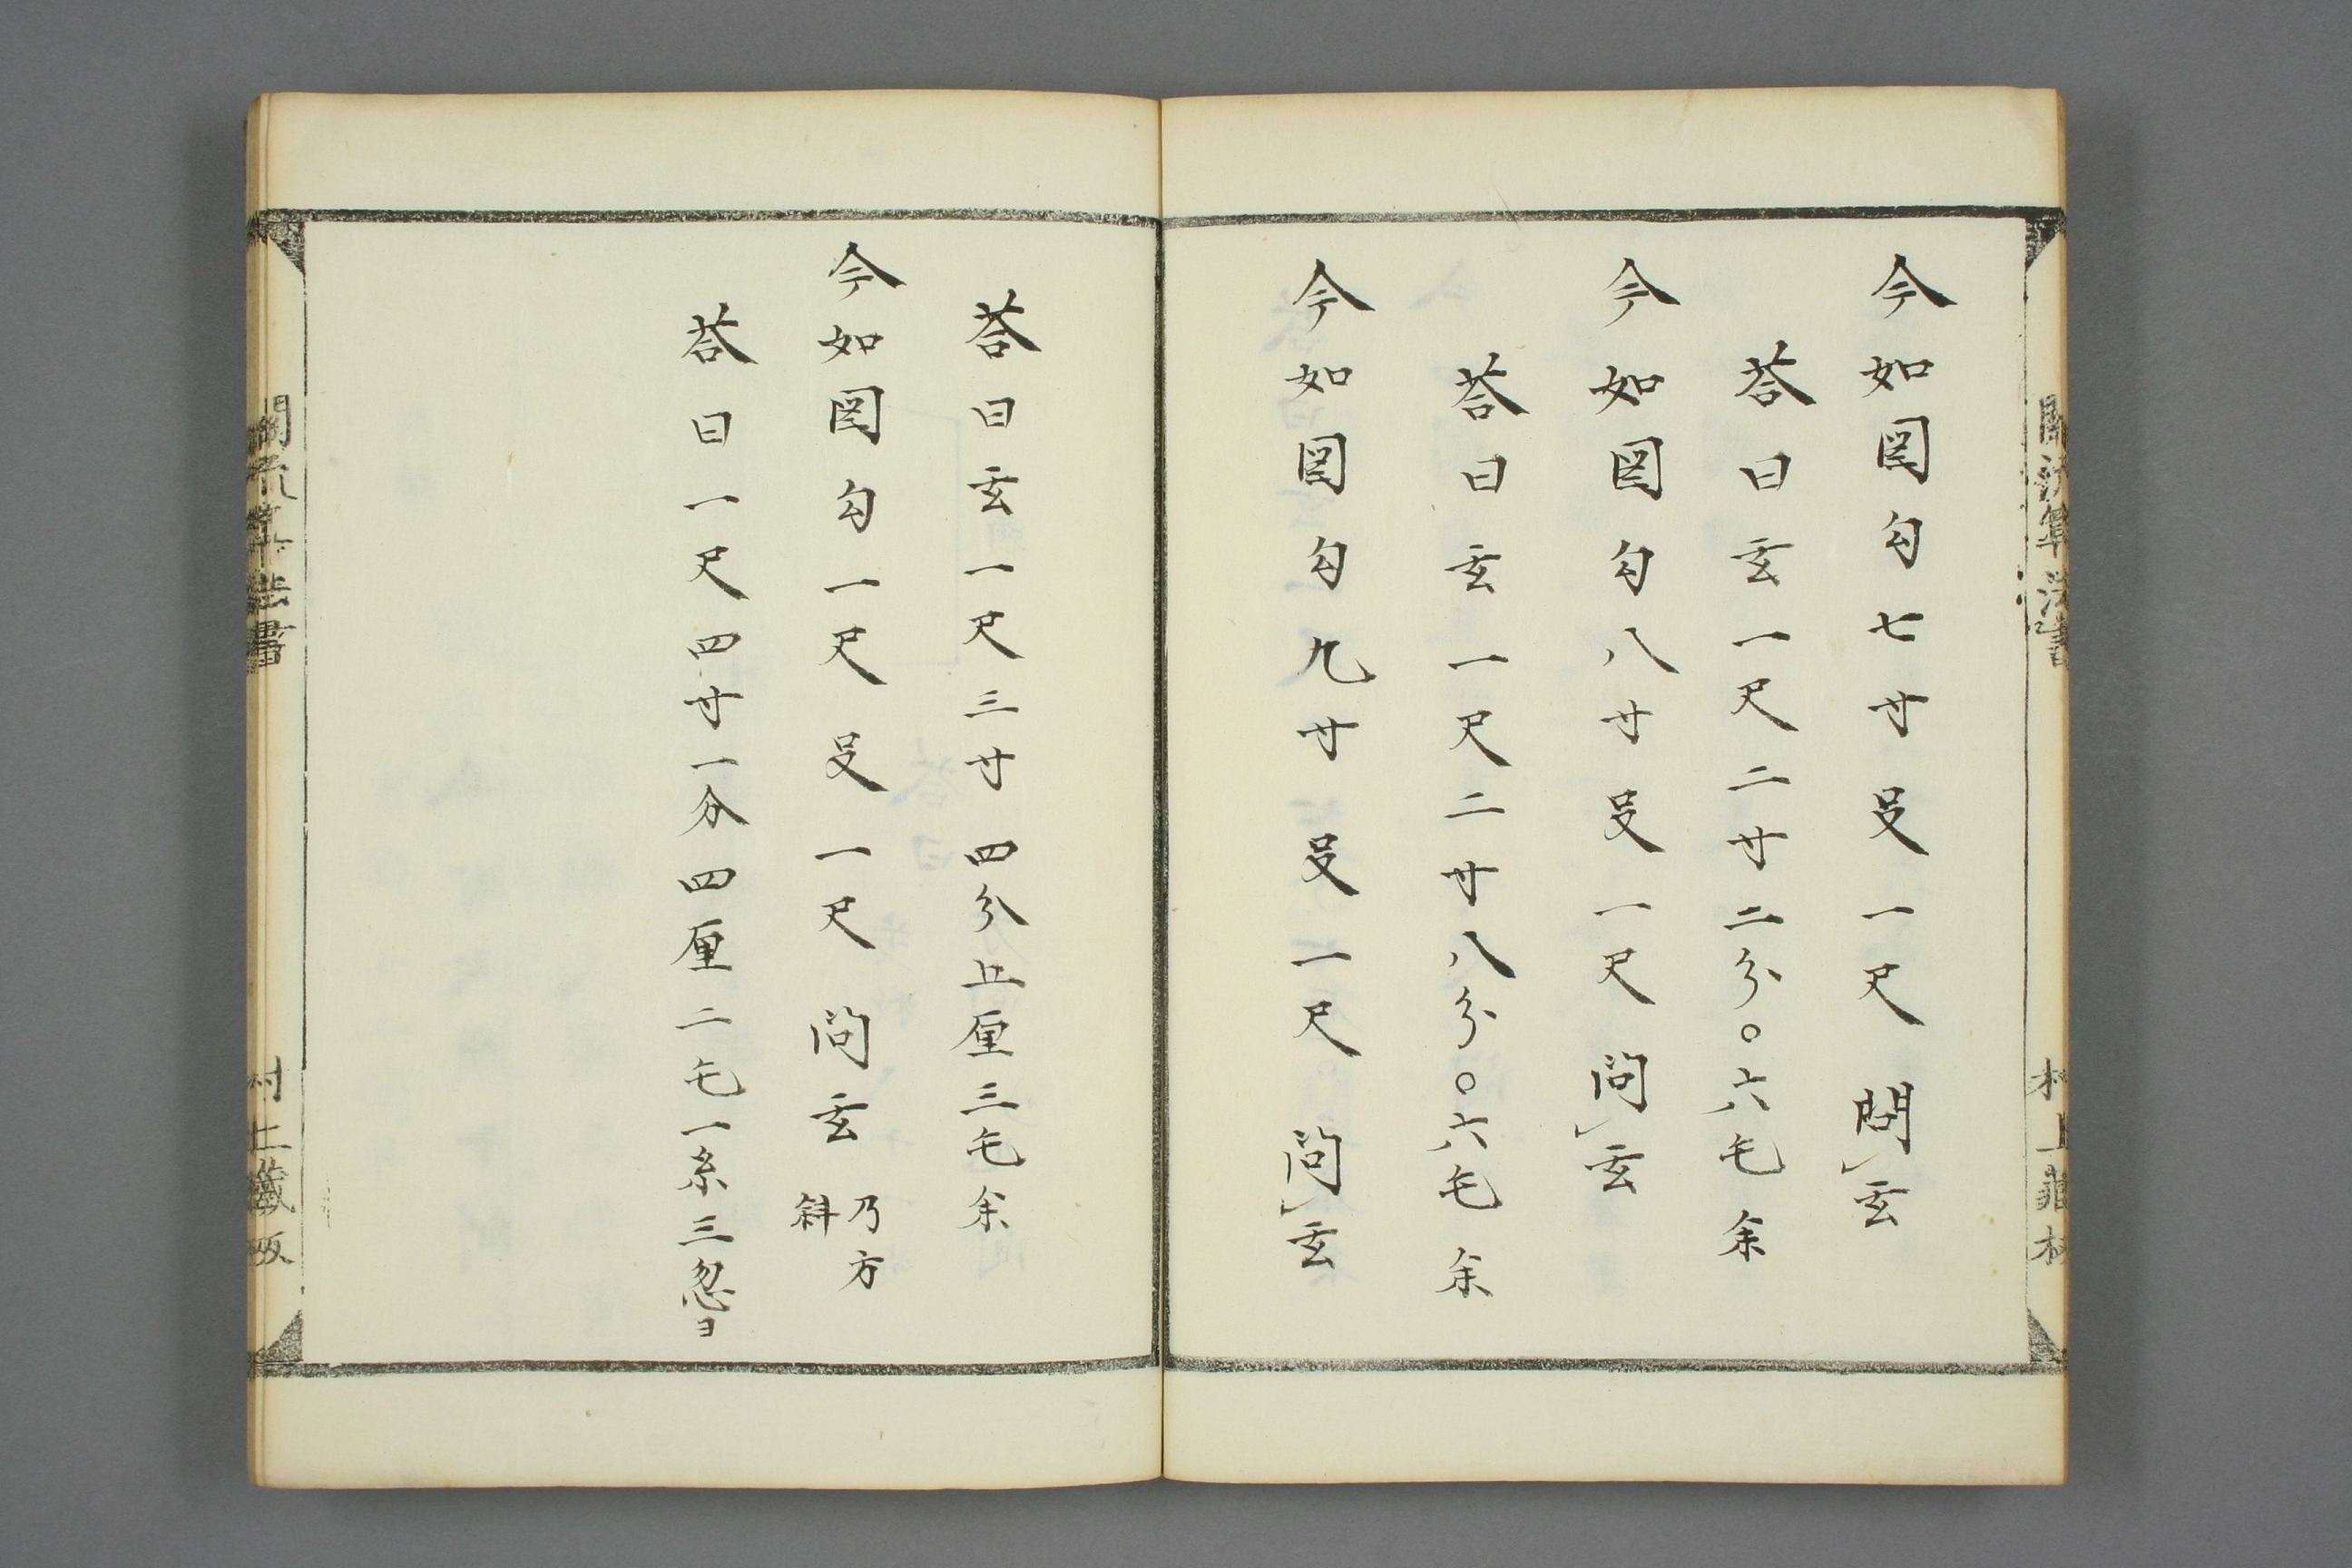 今如図勾七寸𠬛一尺問玄
荅曰玄一尺二寸二分〇六毛余
今如図勾八寸𠬛一尺問玄
荅曰玄一尺二寸八分〇六毛余
今如図勾九寸𠬛一尺問玄
荅曰玄一尺三寸四分五厘三毛余
今如図勾一尺𠬛一尺問玄
乃方
斜
荅曰一尺四寸一分四厘二毛一糸三忽ヨ
関流算法書
村上蔵板